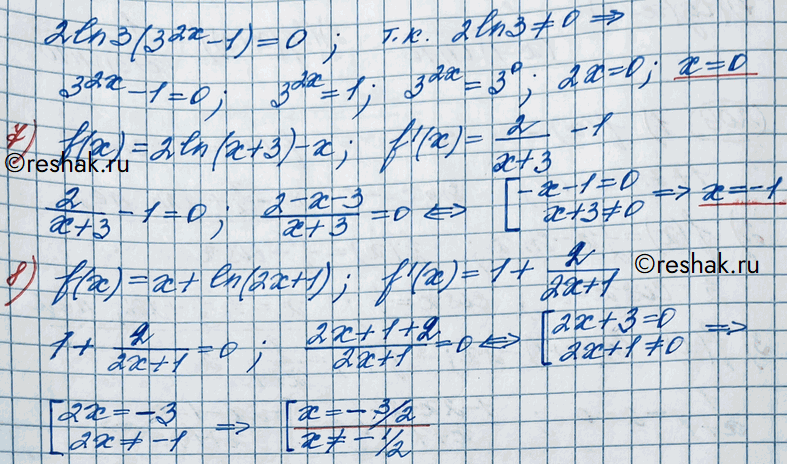 2ln3(3^{2x}-1)=0; т.к. 2ln3≠0 ⇒
3^{2x}-1=0; 3^{2x}=1; 3^{2x}=3^0; 2x=0; x=0
7) f(x)=2ln(x+3)-x; f'(x)=2/(x+3) -1
©reshak.ru
2/(x+3) -1=0; (2-x-3)/(x+3)=0 ⇔ [-x-1=0 x+3≠0 ⇒ x=-1
8) f(x)=x+ln(2x+1); f'(x)=1+ 2/(2x+1)
©reshak.ru
1+ 2/(2x+1)=0; (2x+1+2)/(2x+1)=0 ⇔ [2x+3=0 2x+1≠0 ⇒
[2x=-3 2x≠-1 ⇒ [x=-3/2 x≠-1/2